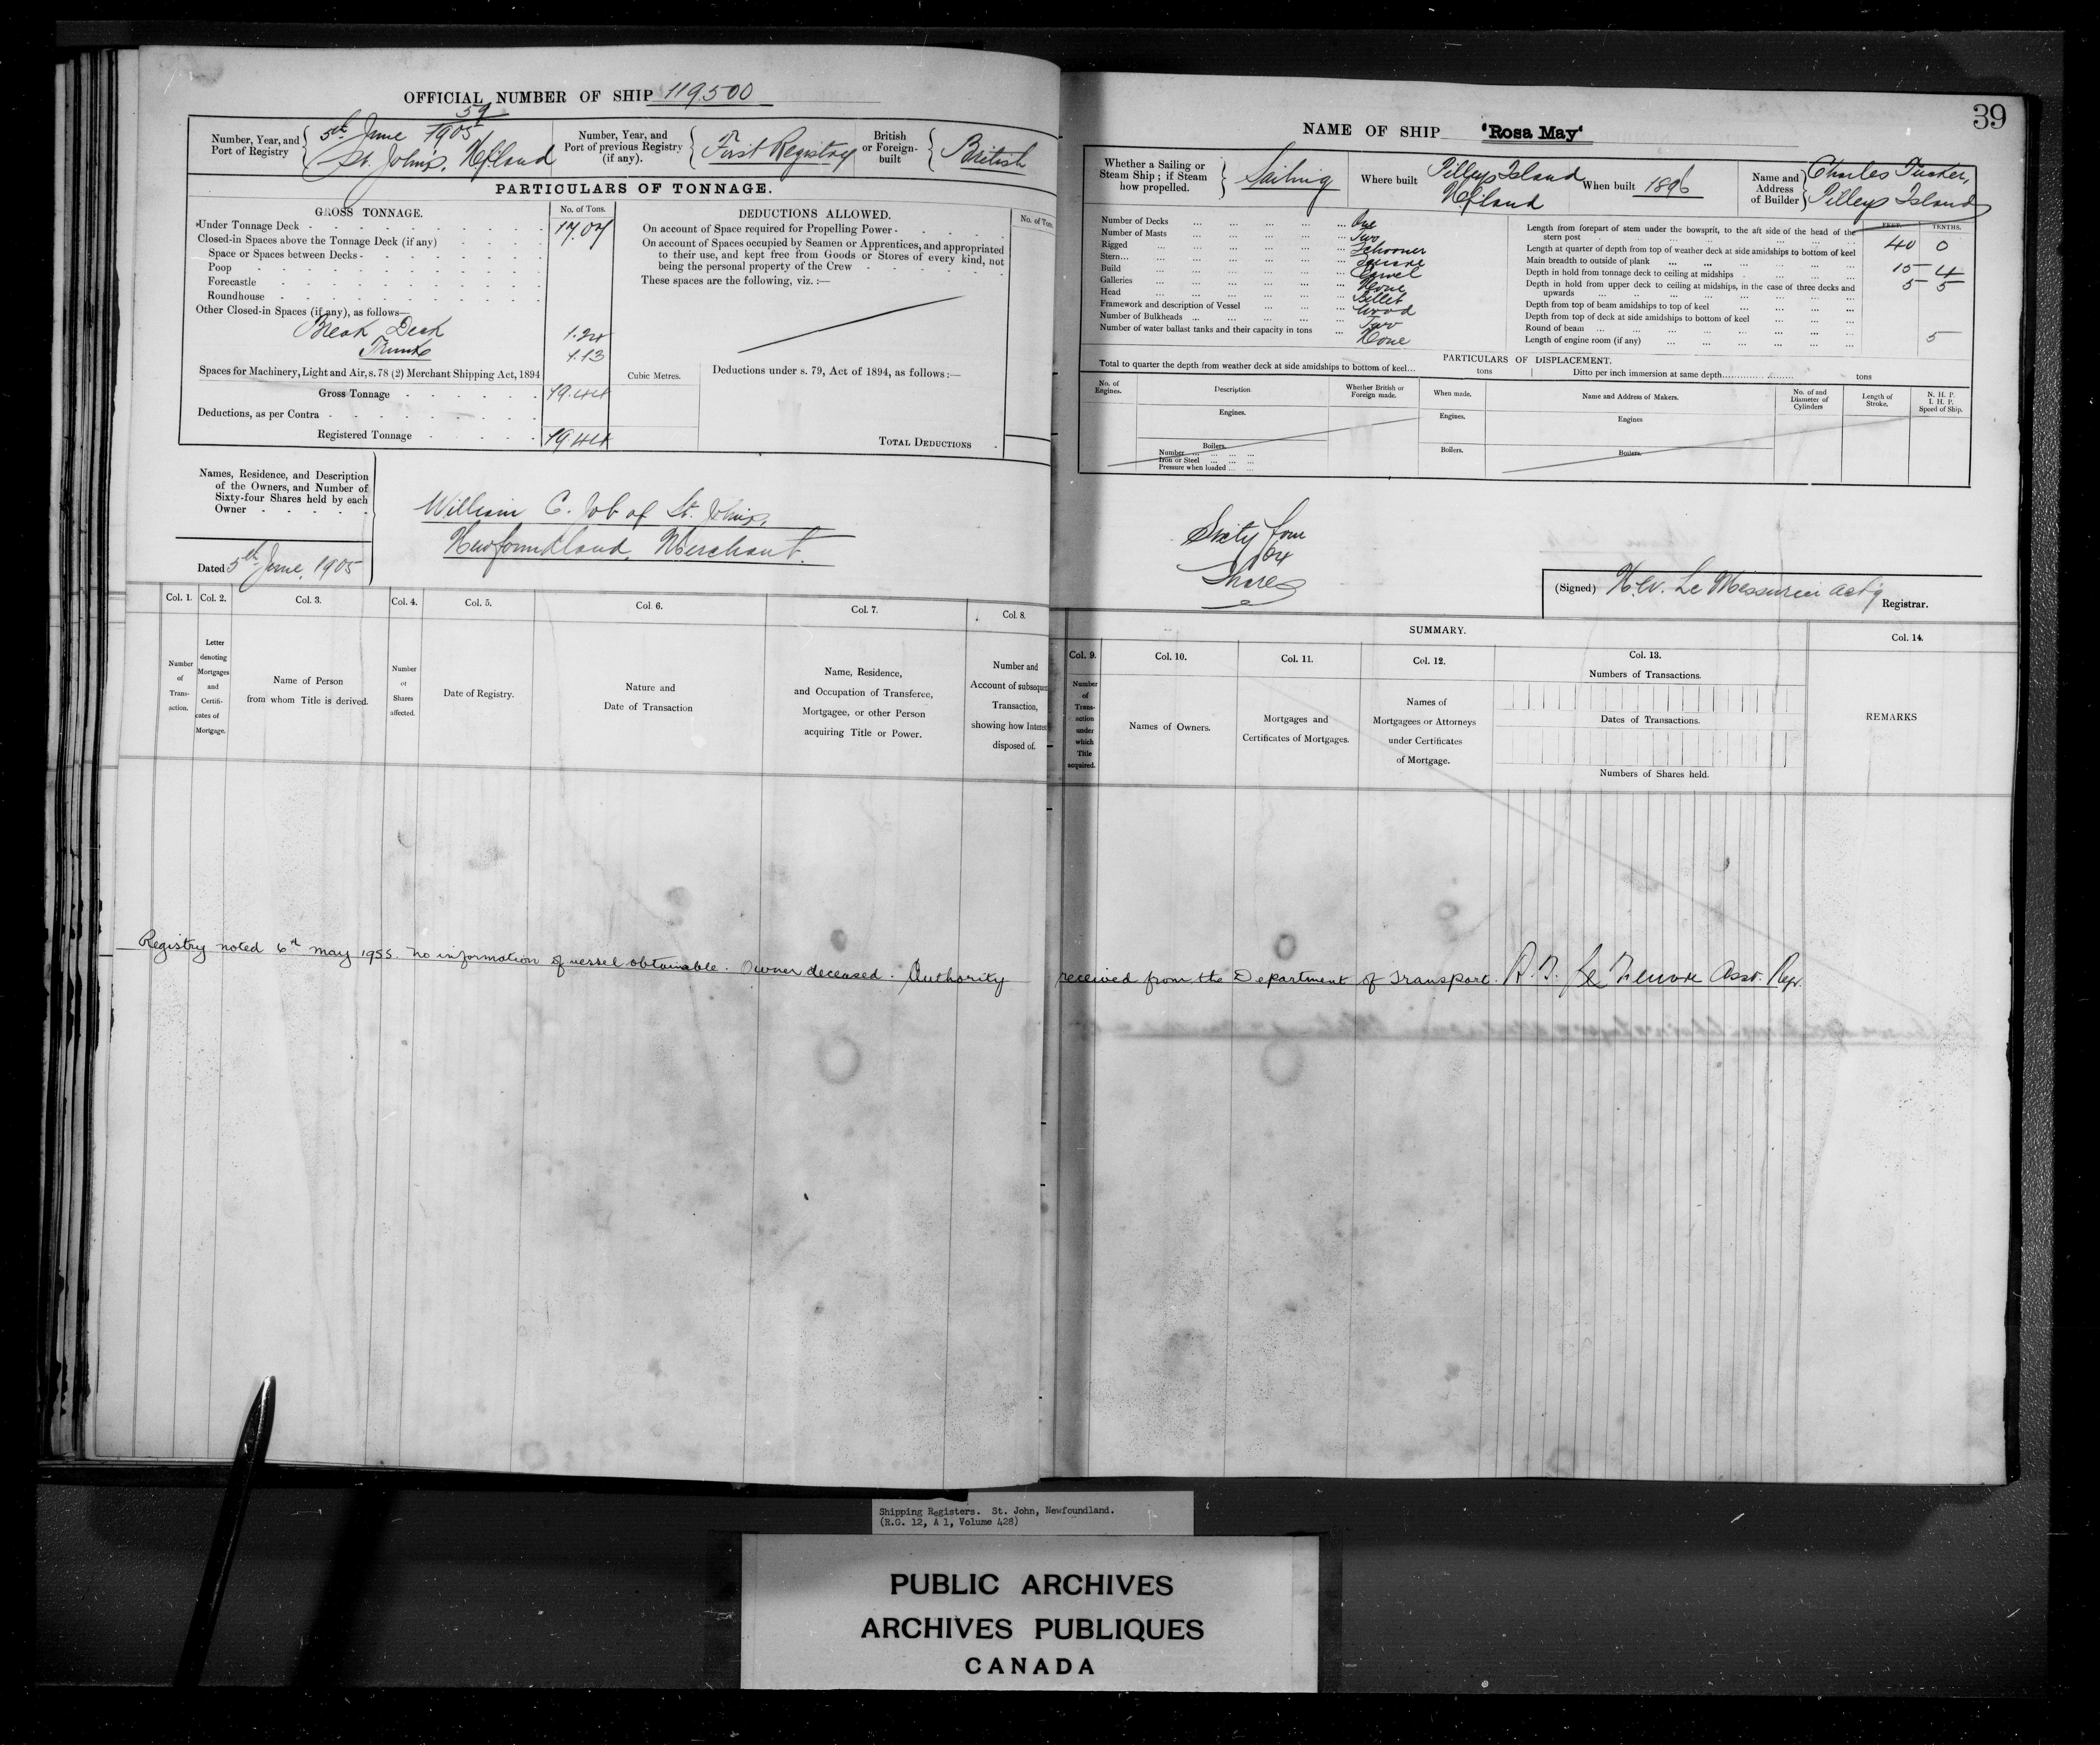 OFFICIAL NUMBER OF SHIP 119500
Number, Year, and Port of Registry
59
5th June 1905
St. John's, Nfland
Number, Year, and Port of previous Registry (if any).
First Registry
British or Foreign-built
British
PARTICULARS OF TONNAGE.
GROSS TONNAGE.
No. of Tons.
Under Tonnage Deck 17.07
Closed-in Spaces above the Tonnage Deck (if any)
Space or Spaces between Decks
Poop
Forecastle
Roundhouse
Other Closed-in Spaces (if any), as follows—
Break Deck 1.24
Trunk 1.13
Spaces for Machinery, Light and Air, s. 78 (2) Merchant Shipping Act, 1894
Gross Tonnage 19.44
Deductions, as per Contra
Registered Tonnage 19.44
DEDUCTIONS ALLOWED.
No. of Tons.
On account of Space required for Propelling Power
On account of Spaces occupied by Seamen or Apprentices, and appropriated
to their use, and kept free from Goods or Stores of every kind, not
being the personal property of the Crew
These spaces are the following, viz. :—
Cubic Metres.
Deductions under s. 79, Act of 1894, as follows:—
TOTAL DEDUCTIONS
Names, Residence, and Description
of the Owners, and Number of
Sixty-four Shares held by each
Owner
William C. Job of St. John's,
Newfoundland, Merchant.
Dated 5th June, 1905
Col. 1.
Col. 2.
Col. 3.
Col. 4.
Col. 5.
Col. 6.
Col. 7.
Col. 8.
Number of Trans-action.
Letter denoting Mortgages and Certifi-cates of Mortgage.
Name of Person from whom Title is derived.
Number of Shares affected.
Date of Registry.
Nature and Date of Transaction
Name, Residence, and Occupation of Transferee, Mortgagee, or other Person acquiring Title or Power.
Number and Account of subsequent Transaction, showing how Interest disposed of.
39
NAME OF SHIP 'Rosa May'
Whether a Sailing or Steam Ship ; if Steam how propelled.
Sailing
Where built
Pilleys Island
Nfland
When built 1896
Name and Address of Builder
Charles Tucker,
Pilleys Island
Number of Decks ... One
Number of Masts ... Two
Rigged ... Schooner
Stern... Square
Build ... Carvel
Galleries ... None
Head ... Billet
Framework and description of Vessel ... Wood
Number of Bulkheads ... Two
Number of water ballast tanks and their capacity in tons ... None
FEET. TENTHS.
Length from forepart of stem under the bowsprit, to the aft side of the head of the
stern post 40 0
Length at quarter of depth from top of weather deck at side amidships to bottom of keel
Main breadth to outside of plank 15 4
Depth in hold from tonnage deck to ceiling at midships 5 5
Depth in hold from upper deck to ceiling at midships, in the case of three decks and
upwards
Depth from top of beam amidships to top of keel
Depth from top of deck at side amidships to bottom of keel
Round of beam 5
Length of engine room (if any)
PARTICULARS OF DISPLACEMENT.
Total to quarter the depth from weather deck at side amidships to bottom of keel... tons
Ditto per inch immersion at same depth... tons
No. of Engines.
Description
Whether British or Foreign made.
When made.
Name and Address of Makers.
No. of and Diameter of Cylinders
Length of Stroke.
N. H. P. I. H. P. Speed of Ship.
Engines.
Engines.
Engines
Boilers.
Number
Iron or Steel
Pressure when loaded
Boilers.
Boilers.
Sixty four
64
Shares
(Signed) H.W. Le Messurier act'g
Registrar.
SUMMARY.
Col. 9.
Col. 10.
Col. 11.
Col. 12.
Col. 13.
Col. 14.
Number of Trans-action under which Title acquired.
Names of Owners.
Mortgages and Certificates of Mortgages.
Names of Mortgagees or Attorneys under Certificates of Mortgage.
Numbers of Transactions.
Dates of Transactions.
Numbers of Shares held.
REMARKS
Registry noted 6th May 1955. No information of vessel obtainable. Owner deceased. Authority received from the Department of Transport. Asst. Regr.
Shipping Registers. St. John, Newfoundland.
(R.G. 12, A 1, Volume 428)
PUBLIC ARCHIVES
ARCHIVES PUBLIQUES
CANADA